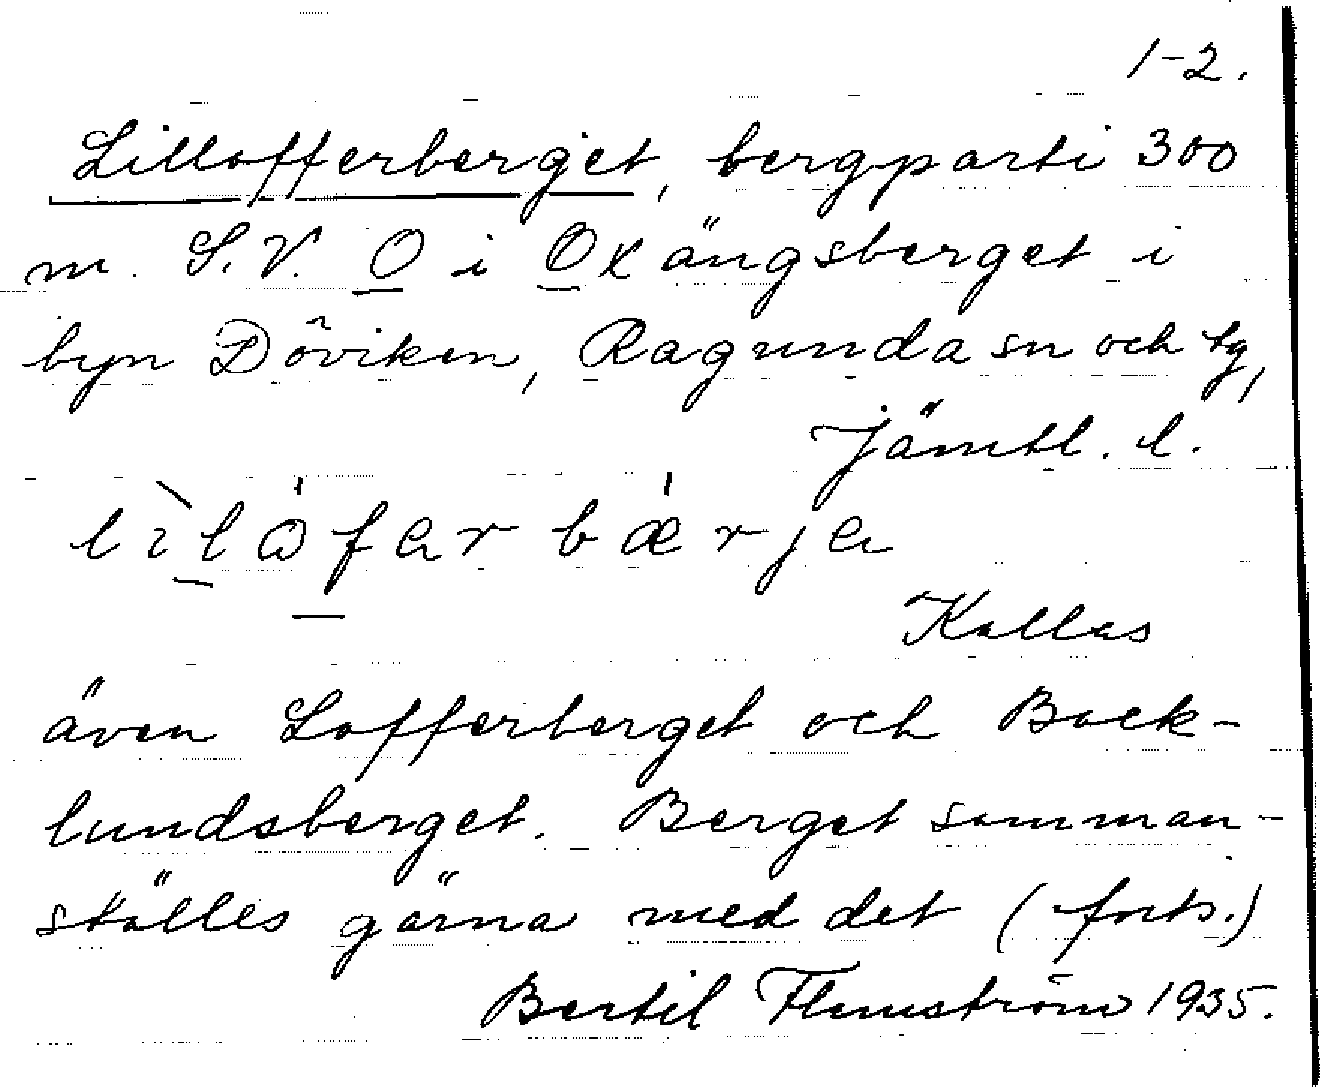 1-2.
Lillofferberget, bergparti 300
m. S.V. O i Oxängsberget i
byn Döviken, Ragunda sn och tg,
Jämtl. l.
Kallas
även Lofferberget och Back-
lundsberget. Berget samman-
ställes gärna med det (forts.)
Bertil Flemström 1935.